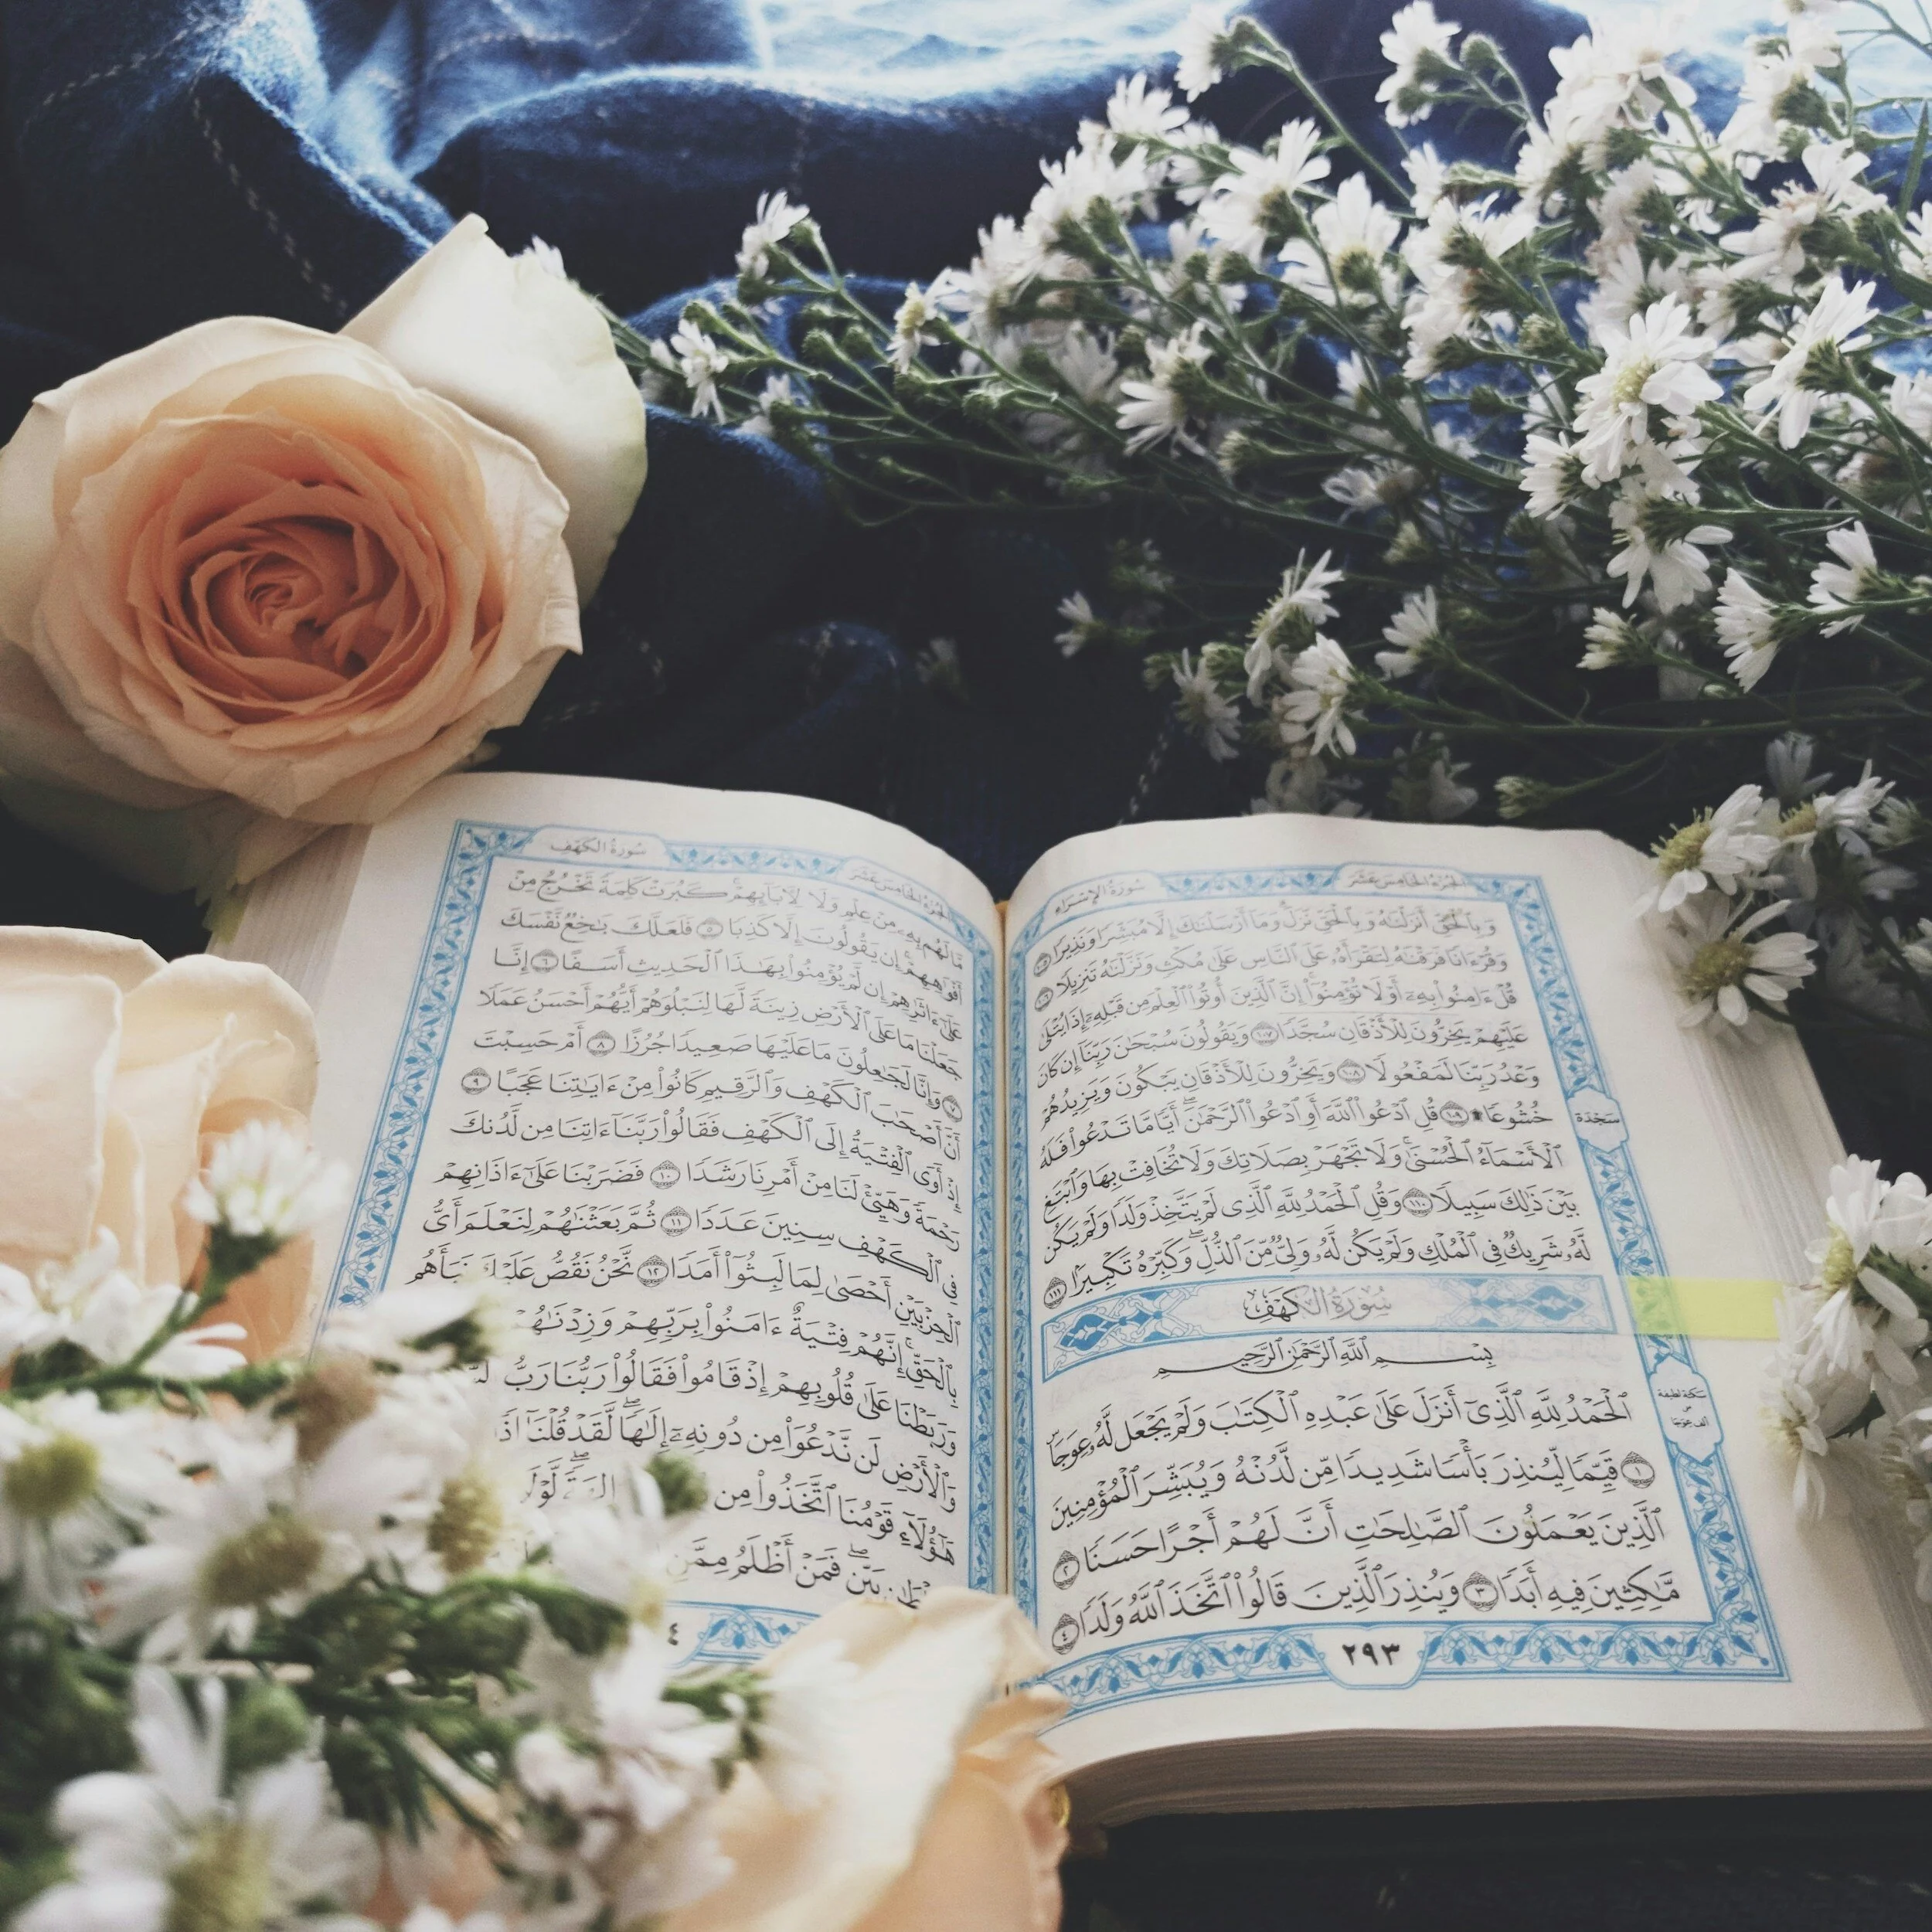 الجزء الخامس عشر
سورة الإسراء
وَبِٱلْحَقِّ أَنزَلْنَٰهُ وَبِٱلْحَقِّ نَزَلَ ۗ وَمَآ أَرْسَلْنَٰكَ إِلَّا مُبَشِّرًا وَنَذِيرًا ١٠٥
وَقُرْءَانًا فَرَقْنَٰهُ لِتَقْرَأَهُۥ عَلَى ٱلنَّاسِ عَلَىٰ مُكْثٍ وَنَزَّلْنَٰهُ تَنزِيلًا ١٠٦
قُلْ ءَامِنُوا۟ بِهِۦٓ أَوْ لَا تُؤْمِنُوٓا۟ ۚ إِنَّ ٱلَّذِينَ أُوتُوا۟ ٱلْعِلْمَ مِن قَبْلِهِۦٓ إِذَا يُتْلَىٰ
عَلَيْهِمْ يَخِرُّونَ لِلْأَذْقَانِ سُجَّدًا ١٠٧ وَيَقُولُونَ سُبْحَٰنَ رَبِّنَآ إِن كَانَ
وَعْدُ رَبِّنَا لَمَفْعُولًا ١٠٨ وَيَخِرُّونَ لِلْأَذْقَانِ يَبْكُونَ وَيَزِيدُهُمْ
خُشُوعًا ۩ ١٠٩ قُلِ ٱدْعُوا۟ ٱللَّهَ أَوِ ٱدْعُوا۟ ٱلرَّحْمَٰنَ ۖ أَيًّا مَّا تَدْعُوا۟ فَلَهُ
سَجْدَة
ٱلْأَسْمَآءُ ٱلْحُسْنَىٰ ۚ وَلَا تَجْهَرْ بِصَلَاتِكَ وَلَا تُخَافِتْ بِهَا وَٱبْتَغِ
بَيْنَ ذَٰلِكَ سَبِيلًا ١١٠ وَقُلِ ٱلْحَمْدُ لِلَّهِ ٱلَّذِى لَمْ يَتَّخِذْ وَلَدًا وَلَمْ يَكُن
لَّهُۥ شَرِيكٌ فِى ٱلْمُلْكِ وَلَمْ يَكُن لَّهُۥ وَلِىٌّ مِّنَ ٱلذُّلِّ ۖ وَكَبِّرْهُ تَكْبِيرًۢا ١١١
سورة الكهف
بِسْمِ ٱللَّهِ ٱلرَّحْمَٰنِ ٱلرَّحِيمِ
ٱلْحَمْدُ لِلَّهِ ٱلَّذِىٓ أَنزَلَ عَلَىٰ عَبْدِهِ ٱلْكِتَٰبَ وَلَمْ يَجْعَل لَّهُۥ عِوَجَا ۜ
سكتة لطيفة
على
ألف عوجا
١ قَيِّمًا لِّيُنذِرَ بَأْسًا شَدِيدًا مِّن لَّدُنْهُ وَيُبَشِّرَ ٱلْمُؤْمِنِينَ
ٱلَّذِينَ يَعْمَلُونَ ٱلصَّٰلِحَٰتِ أَنَّ لَهُمْ أَجْرًا حَسَنًا ٢
مَّٰكِثِينَ فِيهِ أَبَدًا ٣ وَيُنذِرَ ٱلَّذِينَ قَالُوا۟ ٱتَّخَذَ ٱللَّهُ وَلَدًا ٤
٢٩٣
الجزء الخامس عشر
سورة الكهف
مَّا لَهُم بِهِۦ مِنْ عِلْمٍ وَلَا لِءَابَآئِهِمْ ۚ كَبُرَتْ كَلِمَةً تَخْرُجُ مِنْ
أَفْوَٰهِهِمْ ۚ إِن يَقُولُونَ إِلَّا كَذِبًا ٥ فَلَعَلَّكَ بَٰخِعٌ نَّفْسَكَ
عَلَىٰٓ ءَاثَٰرِهِمْ إِن لَّمْ يُؤْمِنُوا۟ بِهَٰذَا ٱلْحَدِيثِ أَسَفًا ٦ إِنَّا
جَعَلْنَا مَا عَلَى ٱلْأَرْضِ زِينَةً لَّهَا لِنَبْلُوَهُمْ أَيُّهُمْ أَحْسَنُ عَمَلًا
٧ وَإِنَّا لَجَٰعِلُونَ مَا عَلَيْهَا صَعِيدًا جُرُزًا ٨ أَمْ حَسِبْتَ
أَنَّ أَصْحَٰبَ ٱلْكَهْفِ وَٱلرَّقِيمِ كَانُوا۟ مِنْ ءَايَٰتِنَا عَجَبًا ٩
إِذْ أَوَى ٱلْفِتْيَةُ إِلَى ٱلْكَهْفِ فَقَالُوا۟ رَبَّنَآ ءَاتِنَا مِن لَّدُنكَ
رَحْمَةً وَهَيِّئْ لَنَا مِنْ أَمْرِنَا رَشَدًا ١٠ فَضَرَبْنَا عَلَىٰٓ ءَاذَانِهِمْ
فِى ٱلْكَهْفِ سِنِينَ عَدَدًا ١١ ثُمَّ بَعَثْنَٰهُمْ لِنَعْلَمَ أَىُّ
ٱلْحِزْبَيْنِ أَحْصَىٰ لِمَا لَبِثُوٓا۟ أَمَدًا ١٢ نَّحْنُ نَقُصُّ عَلَيْكَ نَبَأَهُم
بِٱلْحَقِّ ۚ إِنَّهُمْ فِتْيَةٌ ءَامَنُوا۟ بِرَبِّهِمْ وَزِدْنَٰهُمْ
وَرَبَطْنَا عَلَىٰ قُلُوبِهِمْ إِذْ قَامُوا۟ فَقَالُوا۟ رَبُّنَا رَبُّ
وَٱلْأَرْضِ لَن نَّدْعُوَا۟ مِن دُونِهِۦٓ إِلَٰهًا ۖ لَّقَدْ قُلْنَآ
هَٰٓؤُلَآءِ قَوْمُنَا ٱتَّخَذُوا۟ مِن
بَيِّنٍ ۖ فَمَنْ أَظْلَمُ مِمَّنِ